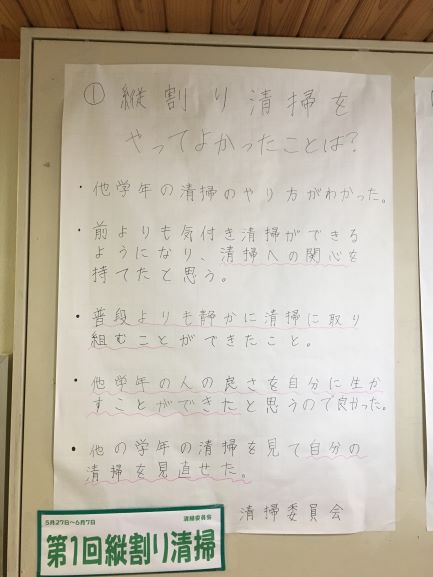 ① 縦割り清掃を
やってよかったことは?
・他学年の清掃のやり方がわかった。
・前よりも気付き清掃ができる
ようになり、清掃への関心を
持てたと思う。
・普段よりも静かに清掃に取り
組むことができたこと。
・他学年の人の良さを自分に生か
すことができたと思うので良かった。
・他の学年の清掃を見て自分の
清掃を見直せた。
清掃委員会
5月27日~6月7日 清掃委員会
第1回縦割り清掃